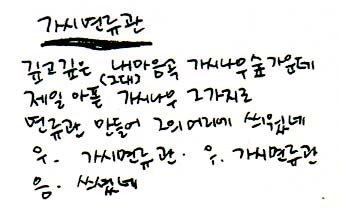 가시면류관
깊고깊은 내마음곡 가시나무숲가운데
(그대)
제일 아픈 가시나무 그가지로
면류관 만들어 그의머리에 씌웠네
우. 가시면류관. 우. 가시면류관
음. 쓰셨네